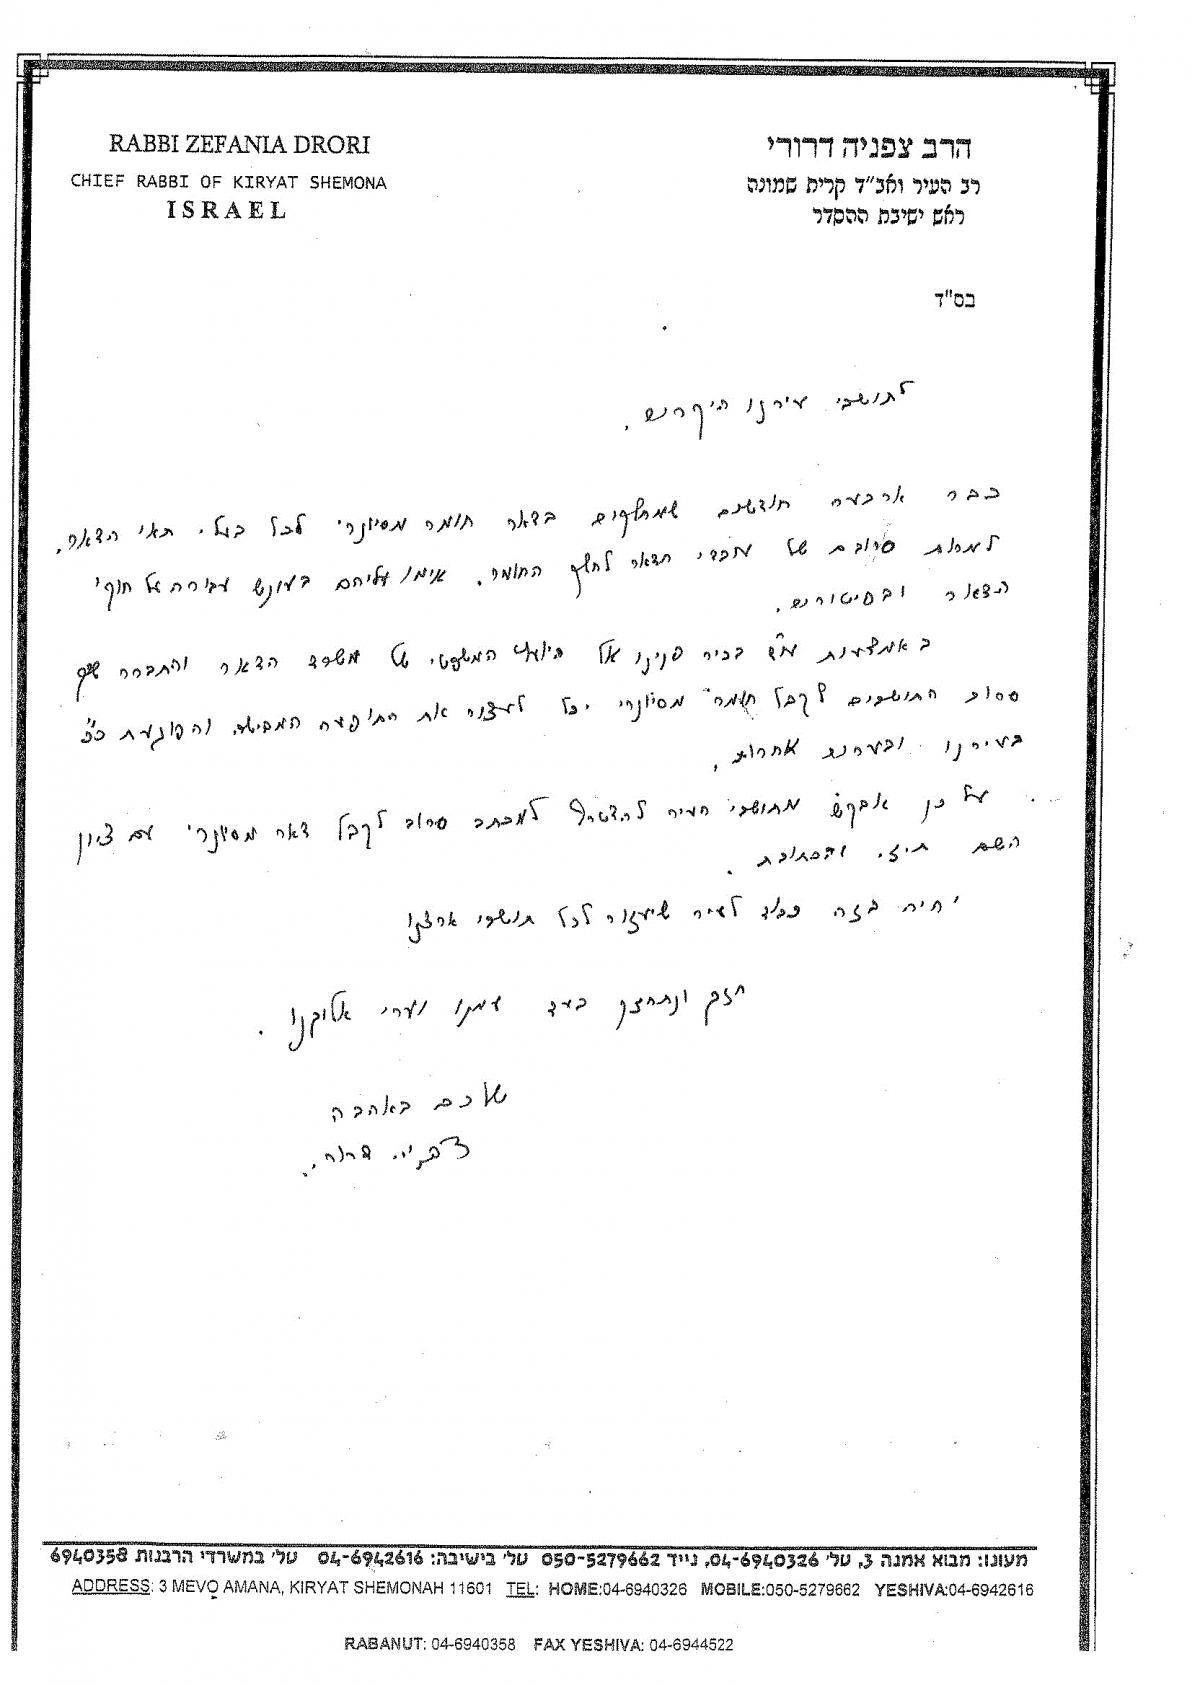 RABBI ZEFANIA DRORI
CHIEF RABBI OF KIRYAT SHEMONA
ISRAEL
הרב צפניה דרורי
רב העיר ואב"ד קרית שמונה
ראש ישיבת ההסדר
בס"ד
לתושבי עירנו היקרים,
כבר ארבעה חודשים שמחלקים בדאר חומר מסיונרי לכל בעלי תאי הדאר.
למרות סרובם של עובדי הדאר לחלק החומר, איימו עליהם בעונש עבירה על חוקי
הדאר ובפיטורים.
באמצעות עו"ד בכיר פנינו אל היועץ המשפטי של משרד הדאר והתברר שרק
סרוב התושבים לקבל חומר מסיונרי יכל לעצור את התופעה המבישה והפוגעת
בעירנו ובערים אחרות.
על כן אבקש מתושבי העיר להצטרף למכתב סרוב לקבל דאר מסיונרי עם ציון
השם ת.ז. והכתובת.
יהיה בזה כבוד לעיר שיעזור לכל תושבי ארצנו
חזק ונתחזק בעד עמנו וערי אלוקנו.
שלכם באהבה
צפניה דרורי
מעונו: מבוא אמנה 3, טל' 04-6940326, נייד 050-5279662 טל' בישיבה: 04-6942616 טל' במשרדי הרבנות 6940358
ADDRESS: 3 MEVO AMANA, KIRYAT SHEMONAH 11601 TEL: HOME:04-6940326 MOBILE:050-5279662 YESHIVA:04-6942616
RABANUT: 04-6940358 FAX YESHIVA: 04-6944522